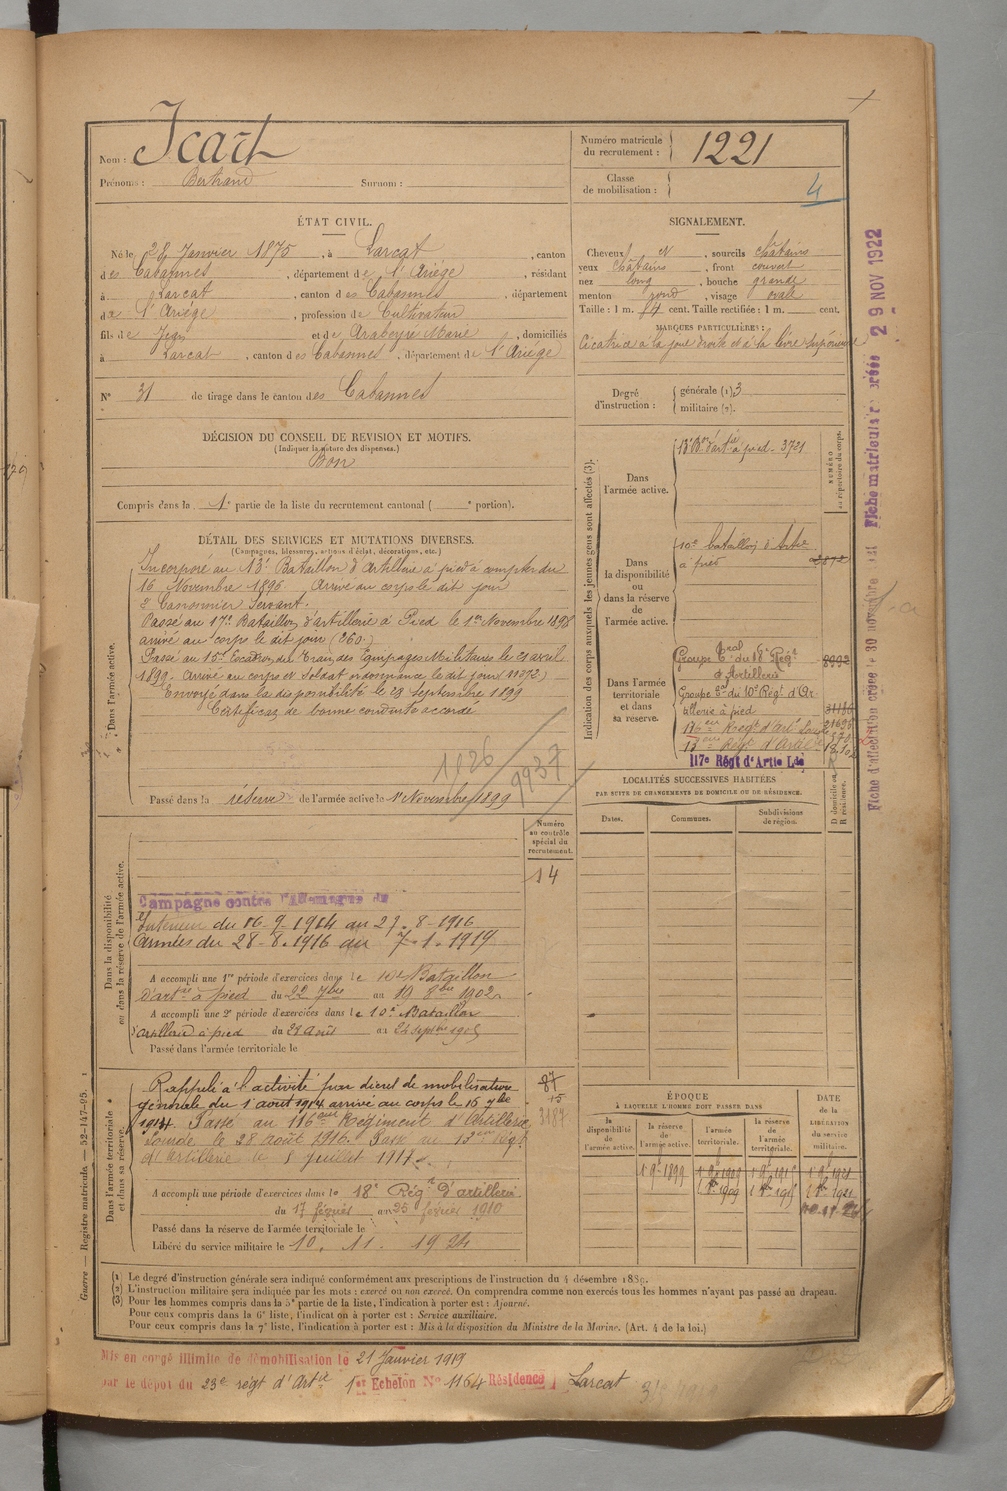 Nom : Icart
Prénoms : Bertrand Surnom :
Numéro matricule du recrutement : 1221
Classe de mobilisation :
4
ÉTAT CIVIL.
Né le 28 Janvier 1875, à Larcat, canton
des Cabannes, département de l'Ariége, résidant
à Larcat, canton des Cabannes, département
de l'Ariége, profession de Cultivateur
fils de Jean et de Arabeyre Marie, domiciliés
à Larcat, canton des Cabannes, département de l'Ariége
N° 31 de tirage dans le canton des Cabannes
SIGNALEMENT.
Cheveux N, sourcils châtains
yeux Châtains, front couvert
nez long, bouche grande
menton rond, visage ovale
Taille : 1 m. 84 cent. Taille rectifiée : 1 m. cent.
MARQUES PARTICULIÈRES :
Cicatrice à la joue droite et à la lèvre supérieure
Degré d'instruction : générale (1). 3
militaire (2).
DÉCISION DU CONSEIL DE REVISION ET MOTIFS.
(Indiquer la nature des dispenses.)
Bon
Compris dans la 1e partie de la liste du recrutement cantonal ( e portion).
DÉTAIL DES SERVICES ET MUTATIONS DIVERSES.
(Campagnes, blessures, actions d'éclat, décorations, etc.)
Dans l'armée active.
Incorporé au 13e Bataillon d'Artillerie à pied à compter du
16 Novembre 1896 Arrivé au corps le dit jour
2e Canonnier Servant.
Passé au 17e Bataillon d'artillerie à Pied le 1er Novembre 1898
arrivé au corps le dit jour (260.)
Passé au 15e Escadron du Train des Equipages Militaires le 21 avril
1899. Arrivé au corps et Soldat ordonnance le dit jour (11372)
Envoyé dans la disponibilité le 23 Septembre 1899
Certificat de bonne conduite accordé
1926
9937
Passé dans la réserve de l'armée active le 1er Novembre 1899
Indication des corps auxquels les jeunes gens sont affectés (3).
Dans l'armée active.
13e Bon d'artie à pied. 3721
NUMÉRO au répertoire du corps.
Dans la disponibilité ou dans la réserve de l'armée active.
10e bataillon d'Artie
à pied
Dans l'armée territoriale et dans sa réserve.
Groupe tal du 18e Régt
d'Artillerie
Groupe du 10e Régt d'Ar
tillerie à pied
116 eme Régt d'Art Lourde
13 eme Régt d'Artie
117e Régt d'Artie Lde
LOCALITÉS SUCCESSIVES HABITÉES
PAR SUITE DE CHANGEMENTS DE DOMICILE OU DE RÉSIDENCE.
Dates. Communes. Subdivisions de région. D domicile ou R résidence.
Numéro au contrôle spécial du recrutement.
14
Dans la disponibilité ou dans la réserve de l'armée active.
Campagne contre l'Allemagne du
Intérieur du 16-9-1914 au 27-8-1916
Armées du 28-8-1916 au 7-1-1919
A accompli une 1re période d'exercices dans le 10e Bataillon
d'artie à pied du 22 7bre au 19 8bre 1902
A accompli une 2e période d'exercices dans le 10e Bataillon
d'artillerie à pied du 28 août au 24 septbre 1905
Passé dans l'armée territoriale le
Dans l'armée territoriale et dans sa réserve.
Rappelé à l'activité par décret de mobilisation
générale du 1 août 1914 arrivé au corps le 16 7bre
1914. Passé au 116 eme Régiment d'Artillerie
Lourde le 28 août 1916. Passé au 13 eme Régt
d'artillerie le 1 juillet 1917
87
15
3187
A accompli une période d'exercices dans le 18e Régt d'artillerie
du 17 février au 25 février 1910
Passé dans la réserve de l'armée territoriale le
Libéré du service militaire le 10. 11. 1924
ÉPOQUE
À LAQUELLE L'HOMME DOIT PASSER DANS
la disponibilité de l'armée active.
la réserve de l'armée active.
l'armée territoriale.
la réserve de l'armée territoriale.
DATE de la LIBÉRATION du service militaire.
1 9bre 1899
(1) Le degré d'instruction générale sera indiqué conformément aux prescriptions de l'instruction du 4 décembre 1889.
(2) L'instruction militaire sera indiquée par les mots : exercé ou non exercé. On comprendra comme non exercés tous les hommes n'ayant pas passé au drapeau.
(3) Pour les hommes compris dans la 5e partie de la liste, l'indication à porter est : Ajourné.
Pour ceux compris dans la 6e liste, l'indication à porter est : Service auxiliaire.
Pour ceux compris dans la 7e liste, l'indication à porter est : Mis à la disposition du Ministre de la Marine. (Art. 4 de la loi.)
Guerre — Registre matricule. — 52-147-95.
Mis en congé illimité de démobilisation le 21 Janvier 1919
par le dépôt du 23e régt d'Artie 1er Echelon N° 1164 Résidence Larcat
Fiche matriculaire créée 29 NOV 1922
Fiche d'affectation créée le 30 novembre